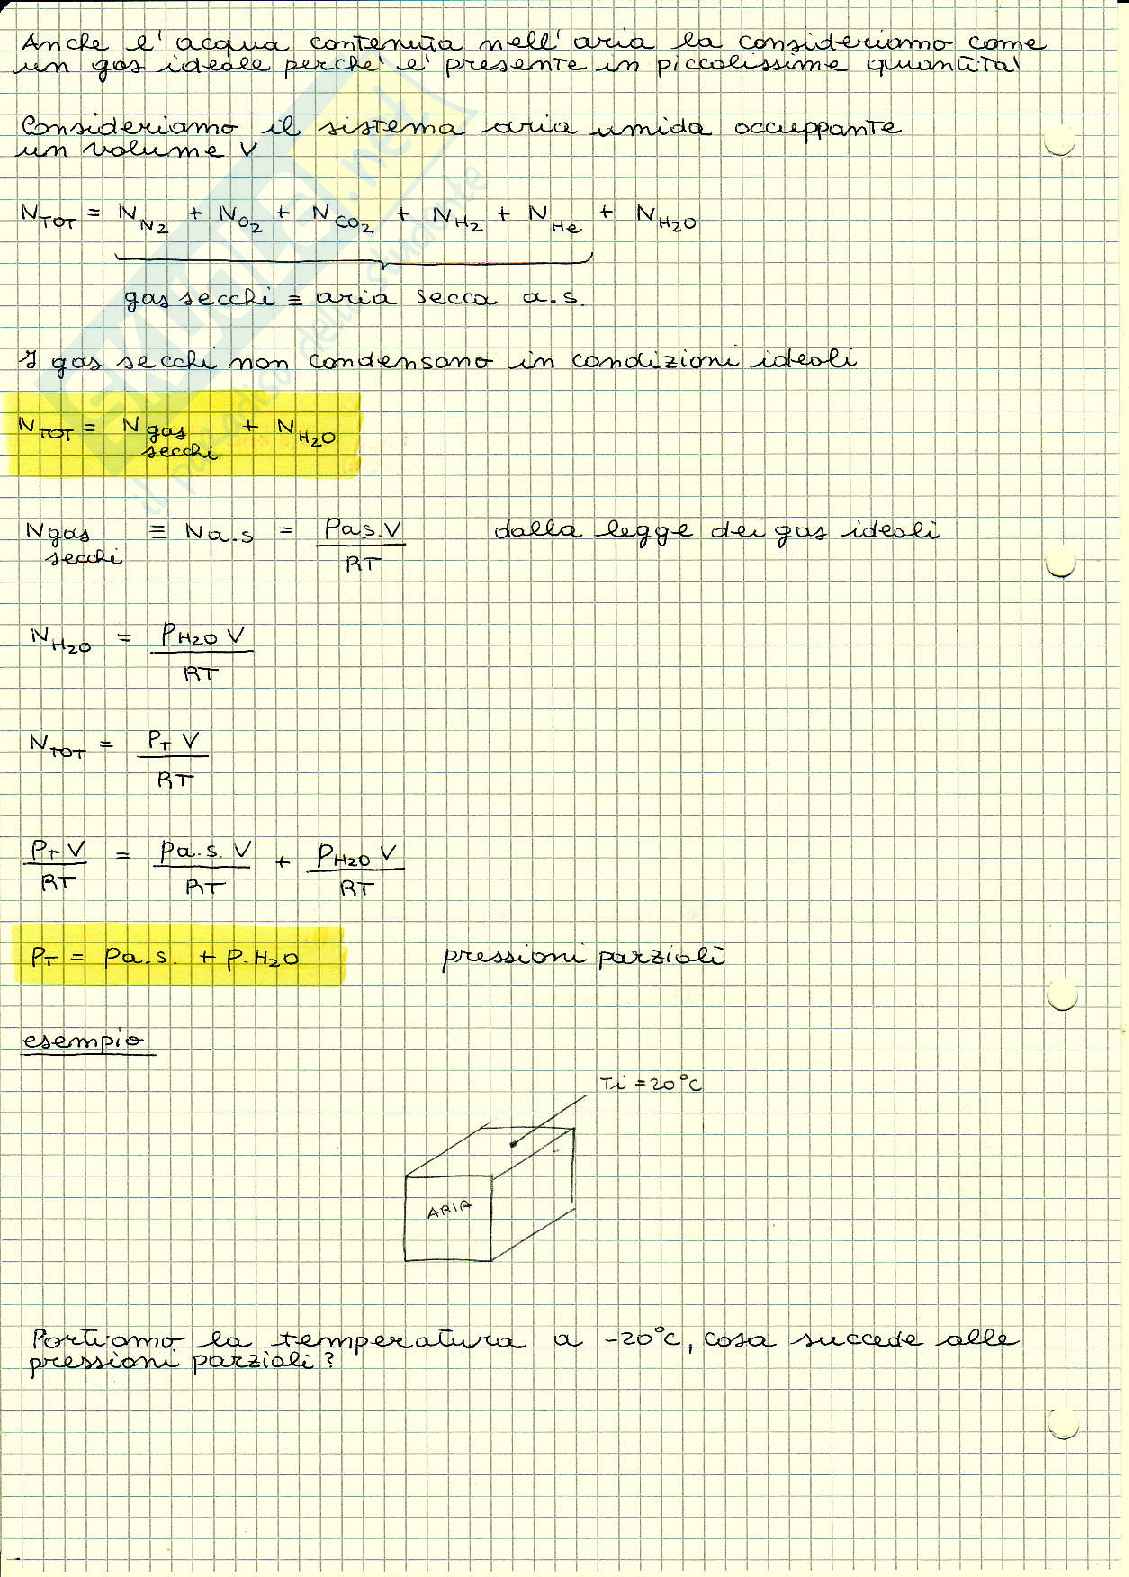 Anche l'acqua contenuta nell'aria la consideriamo come
un gas ideale perche' e' presente in piccolissime quantita'
Consideriamo il sistema aria umida occuppante
un volume V
N_TOT = N_N2 + N_O2 + N_CO2 + N_H2 + N_He + N_H2O
gas secchi ≡ aria secca a.s.
I gas secchi non condensano in condizioni ideali
N_TOT = N gas secchi + N_H2O
N gas secchi ≡ N a.s = Pa.s.V / RT dalla legge dei gas ideali
N_H2O = P_H2O V / RT
N_TOT = P_T V / RT
P_T V / RT = Pa.s. V / RT + P_H2O V / RT
P_T = Pa.s. + P.H2O pressioni parziali
esempio
Ti = 20°C
ARIA
Portiamo la temperatura a -20°C, cosa succede alle
pressioni parziali?